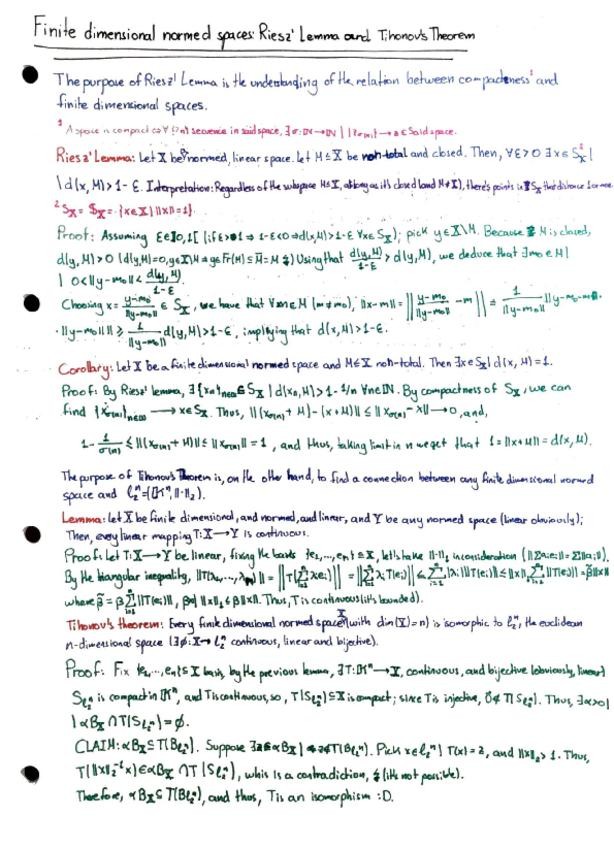 Finite dimensional normed spaces: Riesz' Lemma and Tihonov's Theorem
The purpose of Riesz' Lemma is the understanding of the relation between compactness¹ and
finite dimensional spaces.
¹ A space is compact ⇔ ∀ {xn} sequence in said space, ∃σ: ℕ→ℕ | {xσ(n)} → a ∈ Said space.
Riesz' Lemma: Let X be normed, linear space. Let M ≤ X be non-total and closed. Then, ∀ε>0 ∃x∈ S_X² |
| d(x, M) > 1-ε. Interpretation: Regardless of the subspace M≤X, as long as it's closed (and M≠X), there's points in S_X that distance 1 or more.
² S_X = $_X = {x∈X | ||x||=1}.
Proof: Assuming ε∈]0,1[ (if ε>1 ⇒ 1-ε<0 ⇒ d(x,M)>1-ε ∀x∈S_X); pick y∈X\M. Because M is closed,
d(y,M)>0 (d(y,M)=0, y∈X\M ⇒ y∈Fr(M)⊆M̄=M ↯) Using that d(y,M)/(1-ε) > d(y,M), we deduce that ∃m₀∈M |
| 0<||y-m₀||< d(y,M)/(1-ε)
Choosing x = (y-m₀)/||y-m₀|| ∈ S_X, we have that ∀m∈M (m≠m₀), ||x-m|| = || (y-m₀)/||y-m₀|| - m || = 1/||y-m₀|| ||y-m₀-m·
·||y-m₀|| || ≥ 1/||y-m₀|| d(y,M) > 1-ε, implying that d(x,M)>1-ε.
Corollary: Let X be a finite dimensional normed space and M≤X non-total. Then ∃x∈S_X | d(x,M)=1.
Proof: By Riesz' lemma, ∃{xn}n∈ℕ ⊆ S_X | d(xn,M)>1-1/n ∀n∈ℕ. By compactness of S_X, we can
find {xσ(n)}n∈ℕ → x∈S_X. Thus, ||(xσ(n)+M)-(x+M)|| ≤ ||xσ(n)-x|| → 0, and,
1 - 1/σ(n) ≤ ||(xσ(n)+M)|| ≤ ||xσ(n)|| = 1, and thus, taking limit in n we get that 1=||x+M||=d(x,M).
The purpose of Tihonov's Theorem is, on the other hand, to find a connection between any finite dimensional normed
space and ℓ₂ⁿ=(𝕂ⁿ, ||·||₂).
Lemma: Let X be finite dimensional, and normed, and linear, and Y be any normed space (linear obviously);
Then, every linear mapping T: X→Y is continuous.
Proof: Let T: X→Y be linear, fixing the basis {e₁,...,en} ⊆ X, let's take ||·||₁ in consideration (||Σaᵢeᵢ||=Σ|aᵢ|).
By the triangular inequality, ||T(λ₁,...,λn)|| = ||T(Σλeᵢ)|| = ||Σλᵢ T(eᵢ)|| ≤ Σ|λᵢ| ||T(eᵢ)|| ≤ ||x||₁ Σ||T(eᵢ)|| = β̃||x||
where β̃ = βΣ||T(eᵢ)||, ||x||₁ ≤ β||x||. Thus, T is continuous (it's bounded).
Tihonov's theorem: Every finite dimensional normed space X (with dim(X)=n) is isomorphic to ℓ₂ⁿ, the euclidean
n-dimensional space (∃φ: X→ℓ₂ⁿ continuous, linear and bijective).
Proof: Fix {e₁,...,en} ⊆ X basis, by the previous lemma, ∃T: 𝕂ⁿ→X, continuous, and bijective (obviously, linear)
S_ℓ₂ⁿ is compact in 𝕂ⁿ, and T is continuous, so, T(S_ℓ₂ⁿ) ⊆ X is compact; since T is injective, 0∉T(S_ℓ₂ⁿ). Thus, ∃α>0 |
| αB_X ∩ T(S_ℓ₂ⁿ) = ∅.
CLAIM: αB_X ⊆ T(B_ℓ₂ⁿ). Suppose ∃z∈αB_X | z∉T(B_ℓ₂ⁿ). Pick x∈ℓ₂ⁿ | T(x)=z, and ||x||₂>1. Thus,
T(||x||₂⁻¹x) ∈ αB_X ∩ T(S_ℓ₂ⁿ), whis is a contradiction, ↯ (it's not possible).
Therefore, αB_X ⊆ T(B_ℓ₂ⁿ), and thus, T is an isomorphism :D.